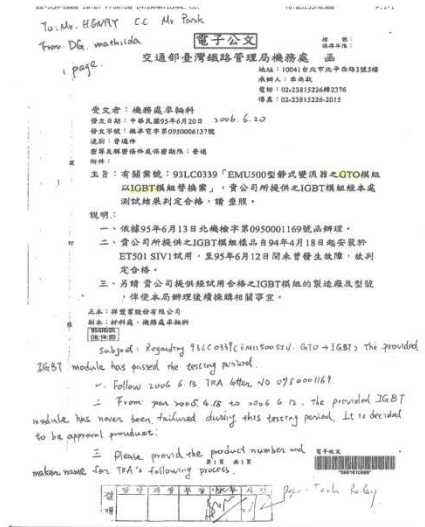 To: Mr. HENRY C.C Mr Park
From: DG. mathilda
1 page.
電子公文
檔 號：
保存年限：
交通部臺灣鐵路管理局機務處 函
地址：10041台北市北平西路3號5樓
電話：02-23815226轉2376
傳真：02-23815226-2015
受文者：機務處車輛科
發文日期：中華民國95年6月20日 2006.6.20
發文字號：機車電字第0950006137號
速別：普通
密等及解密條件或保密期限：普通
附件：
主旨：有關案號：93LC0339「EMU500型靜式變流器之GTO模組
以IGBT模組替換案」，貴公司所提供之IGBT模組經本處
測試結果判定合格，請 查照。
說明：
一、依據95年6月13日北機檢字第0950001169號函辦理。
二、貴公司所提供之IGBT模組樣品自94年4月18日起安裝於
ET501 SIV1試用，至95年6月12日間未曾發生故障，故判
定合格。
三、另請 貴公司提供經試用合格之IGBT模組的製造廠及型號
，俾使本局辦理後續採購相關事宜。
正本：祥豐業股份有限公司
副本：材料處、機務處車輛科
Subject: Regarding 93LC0339 (EMU500 SIV. GTO → IGBT) The provided
IGBT module has passed the testing period.
一. Follow 2006 6.13. TRA letter NO 0950001169
二 From year 2005.4.18 to 2006 6.12. The provided IGBT
module has never been failured during this testing period. It is decided
to be approval product.
三 Please provid the product number and
maker name for TRA's following process.
第1頁 共1頁
電子收文